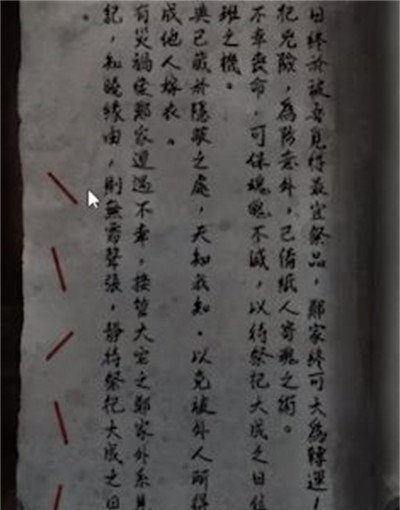 日終於被吾覓得最宜祭品，鄭家終可大為轉運！
祀兇險，為防意外，已備紙人寄魂之術。
不幸喪命，可保魂魄不滅，以待祭祀大成之日
之機。
已藏於隱蔽之處，天知我知。以免被外人所得
成他人嫁衣。
有災禍使鄭家遭遇不幸，接管大宅之鄭家外系見
記，知曉緣由，則無需聲張，靜待祭祀大成之日
。